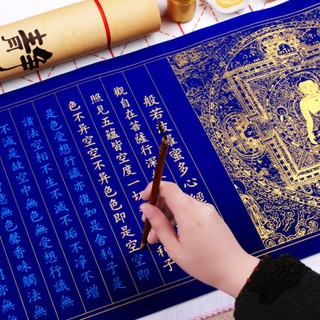 般若波羅蜜多心經
觀自在菩薩行深
照見五蘊皆空度一切利子
色不異空空不異色色即是空空即
是色受想行識亦復如是舍利子是
諸法空相不生不滅不垢不淨不增
不減是故空中無色無受想行識無
無色聲香味觸法無